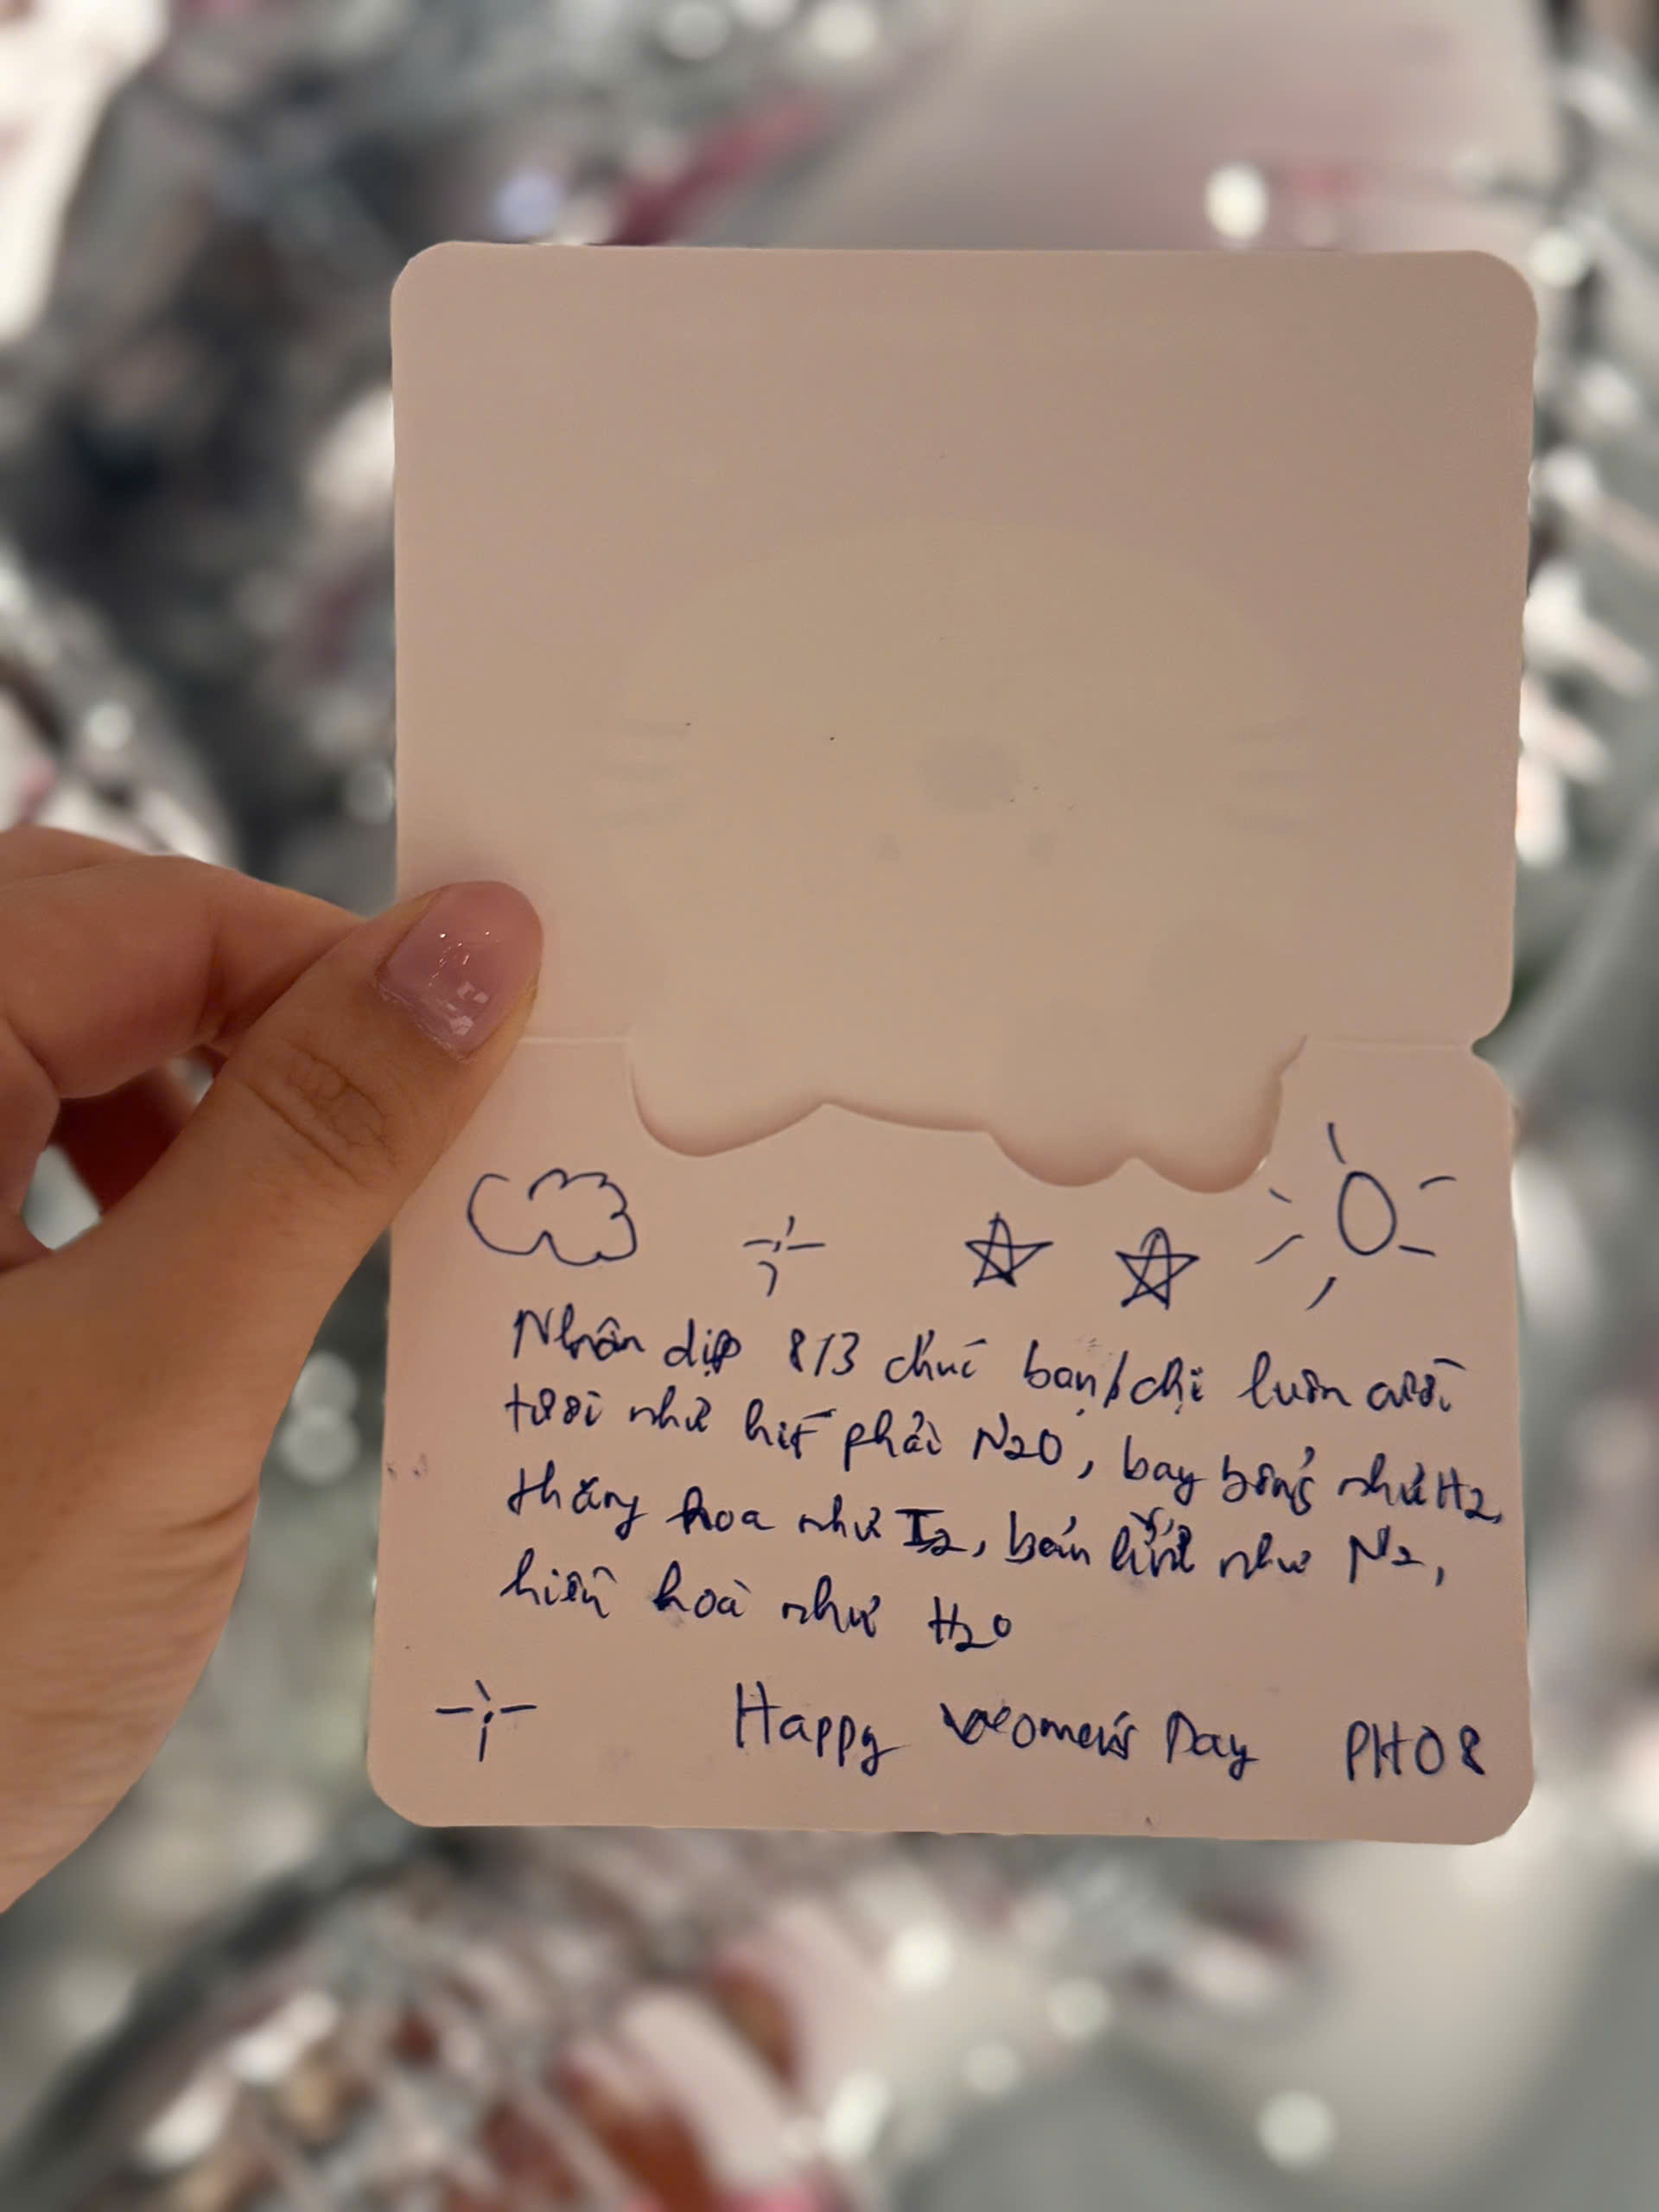 Nhân dịp 8/3 chúc bạn/chị luôn cười
tươi như hít phải N2O, bay bổng như H2,
thăng hoa như I2, bản lĩnh như N2,
hiền hoà như H2O
Happy Women's Day PH08